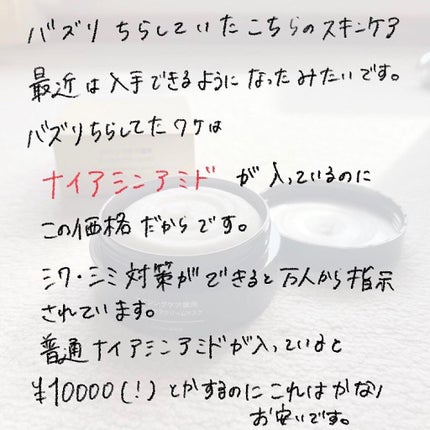 バズりちらしていたこちらのスキンケア
最近は入手できるようになったみたいです。
バズりちらしてたワケは
ナイアシンアミドが入っているのに
この価格だからです。
シワ・シミ対策ができると万人から指示
されています。
普通ナイアシンアミドが入っていると
¥10000(!)とかするのにこれはかなり
お安いです。